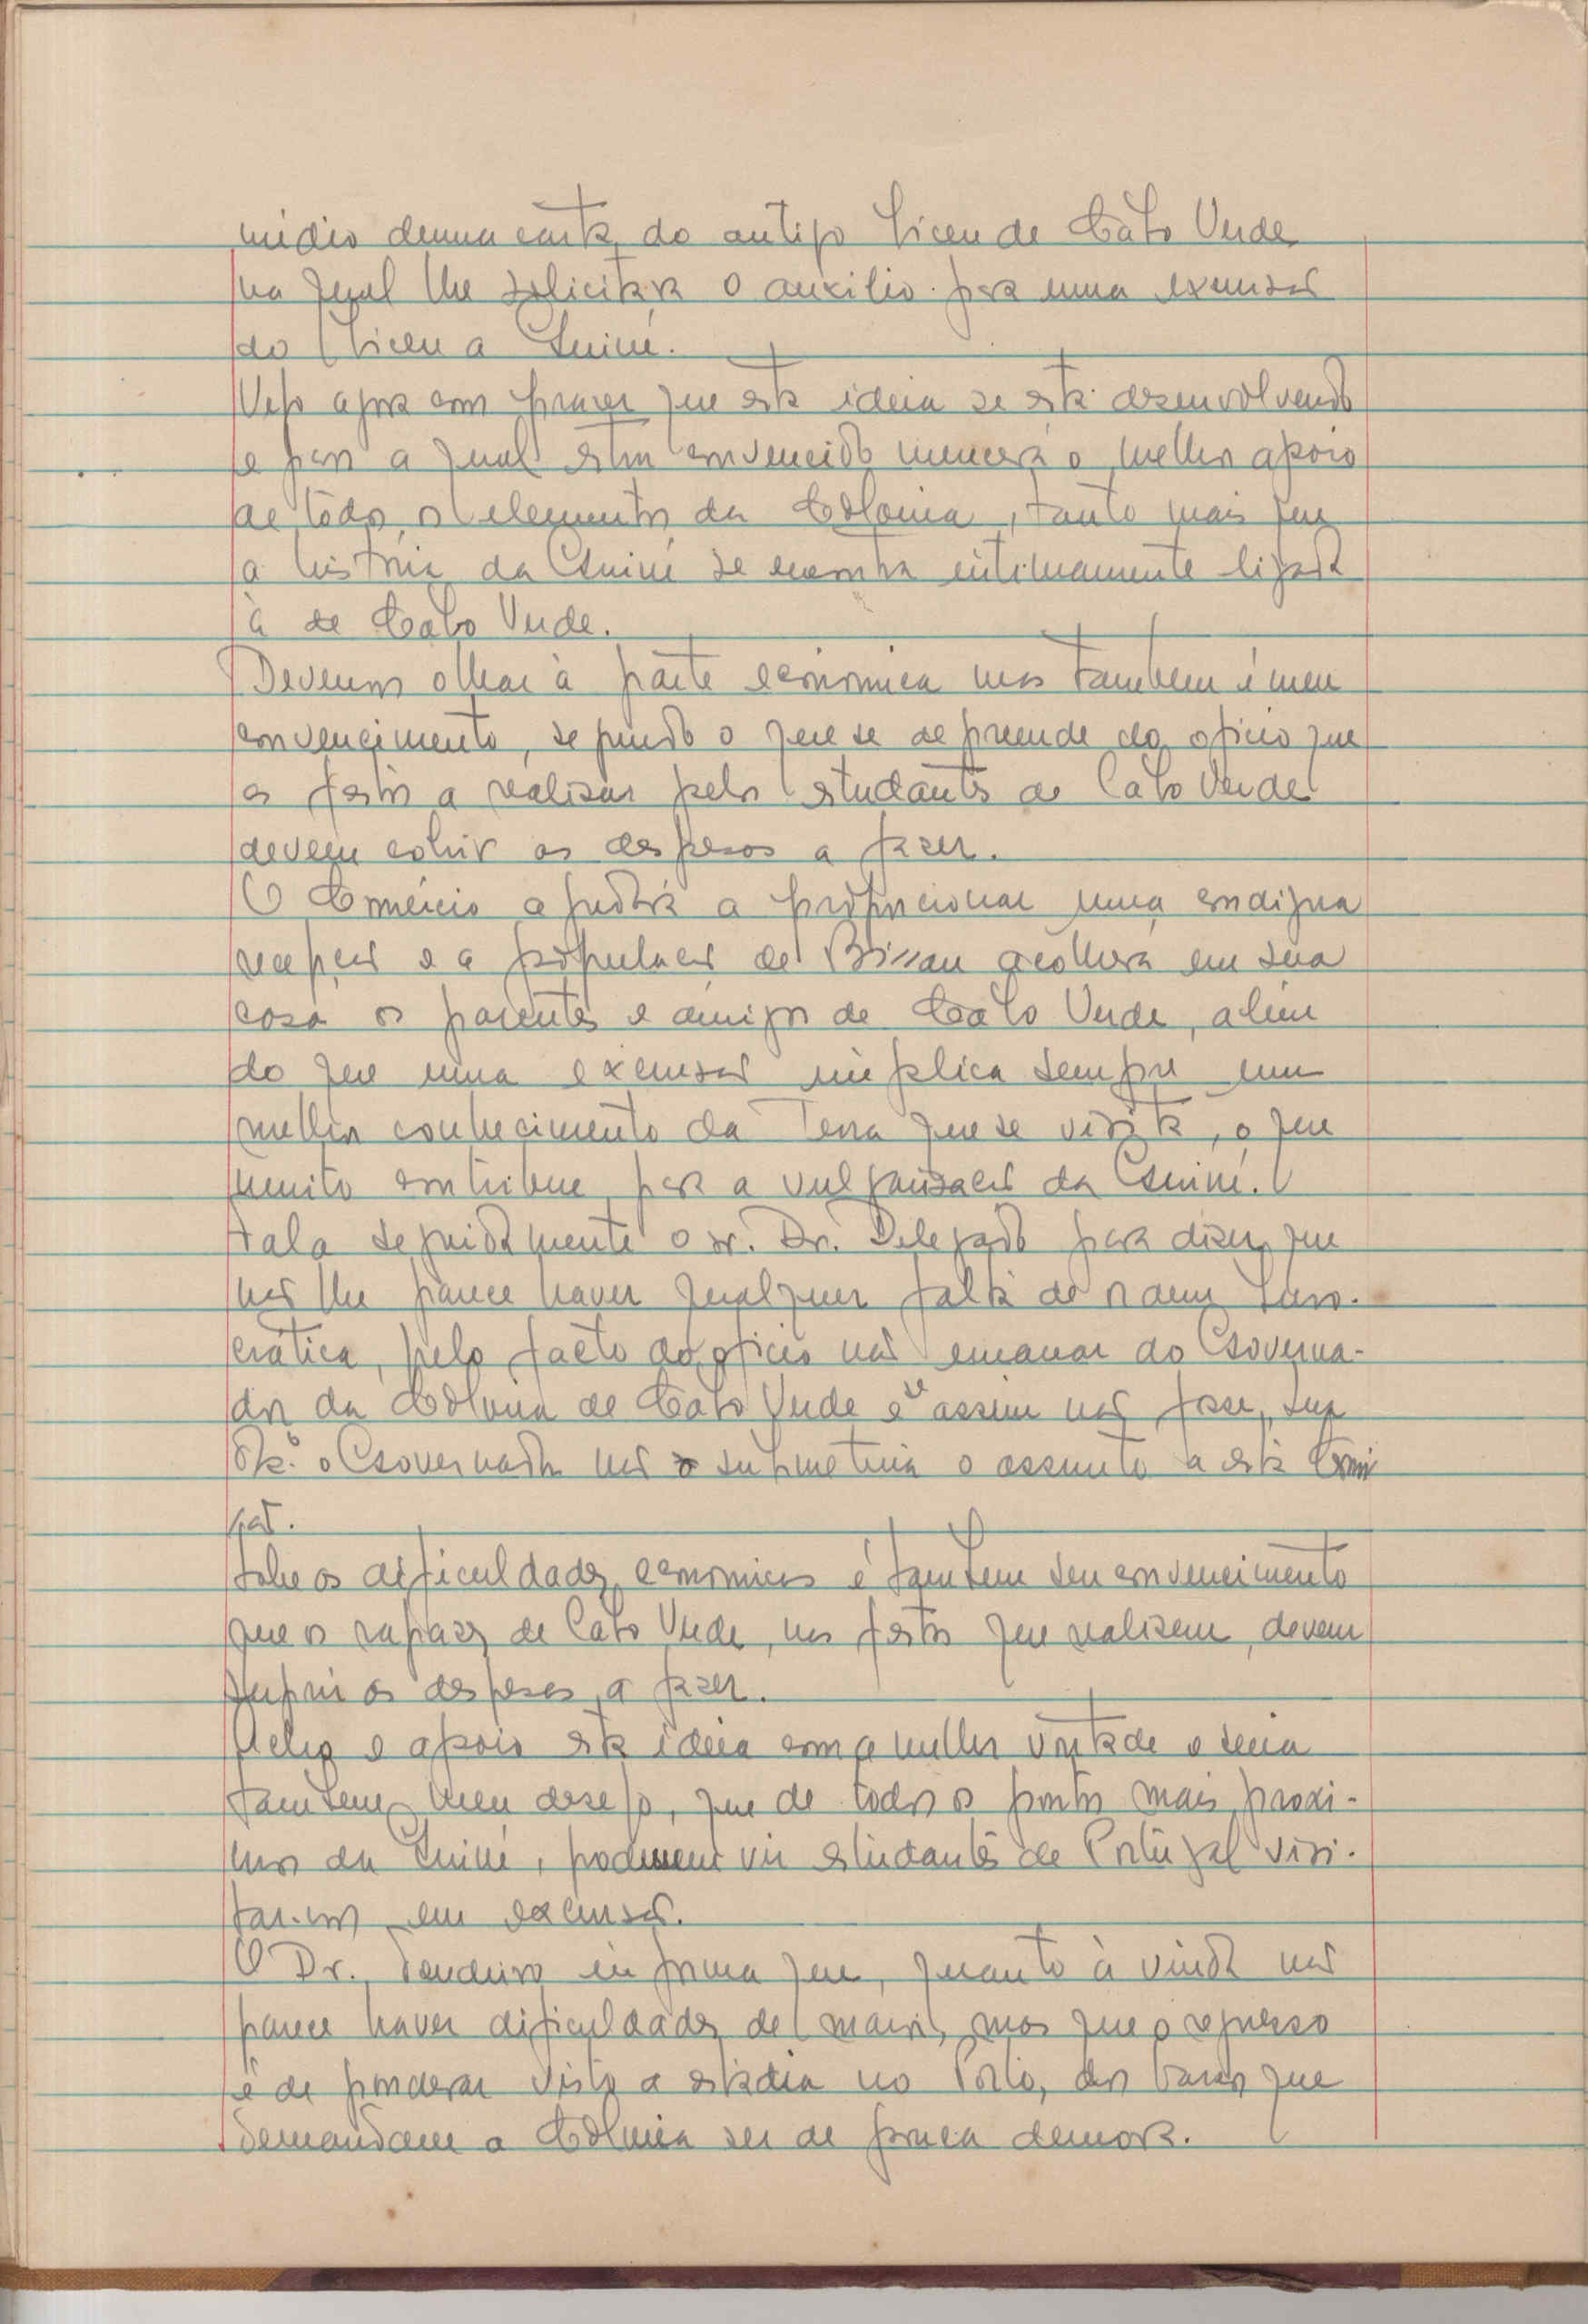 médio duma carta do antigo Liceu de Cabo Verde
na qual lhe solicitára o auxilio para uma excursão
do Liceu a Guiné.
Vejo agora com prazer que esta ideia se está desenvolvendo
e para a qual estou convencido merecerá o melhor apoio
de todos os elementos da Colonia, tanto mais que
a história da Guiné se encontra intimamente ligada
à de Cabo Verde.
Devemos olhar à parte económica mas tambem é meu
convencimento, segundo o que se depreende do oficio que
as festas a realizar pelos estudantes de Cabo Verde
devem cobrir as despesas a fazer.
O Comércio ajudará a proporcionar uma condigna
recepção e a população de Bissau acolherá em sua
casa os parentes e amigos de Cabo Verde, alem
do que uma excursão implica sempre um
melhor conhecimento da Terra que se visita, o que
muito contribue para a vulgarização da Guiné.
Fala seguidamente o sr. Dr. Delegado para dizer que
não lhe parece haver qualquer falta de ordem buro-
crática, pelo facto do oficio não emanar do Governa-
dor da Colonia de Cabo Verde e se assim não fosse, Sua
Ex.ª o Governador não submeteria o assunto a esta Comis
são.
Sobre as dificuldades economicas é tambem seu convencimento
que os rapazes de Cabo Verde, nas festas que realizem, devem
suprir as despesas a fazer.
Acho e apoio esta ideia com a melhor vontade e seria
tambem meu desejo, que de todos os pontos mais proxi-
mos da Guiné, podessem vir estudantes de Portugal visi-
tar-nos em excursão.
O Dr. informa que, quanto à vinda não
parece haver dificuldades de maior, mas que o regresso
é de ponderar visto a estadia no Porto, dos barcos que
demandam a Colonia ser de pouca demora.